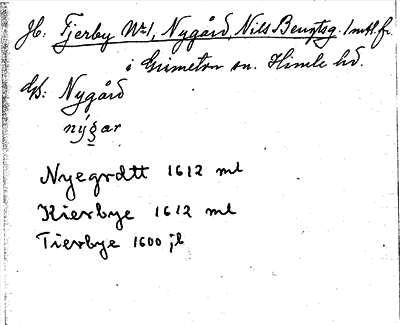 Jb: Tjerby Nr 1, Nygård, Nils Bengtsg. 1 mtl. fr.
i Grimeton sn. Himle hd.
Gd: Nygård
nýgar
Nyegrdtt 1612 ml
Kierbye 1612 ml
Tierbye 1600 jb